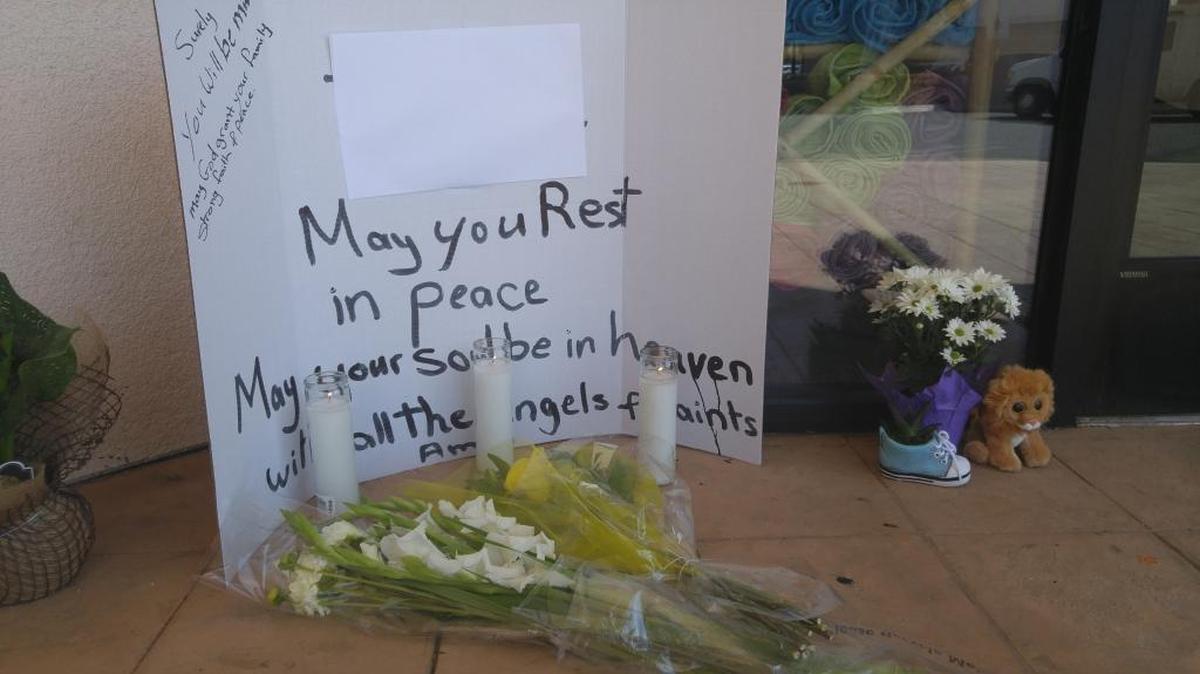 Surely
You Will be
May God grant your family
strong faith & peace.
May you Rest
in peace
May your soul be in heaven
with all the angels & saints